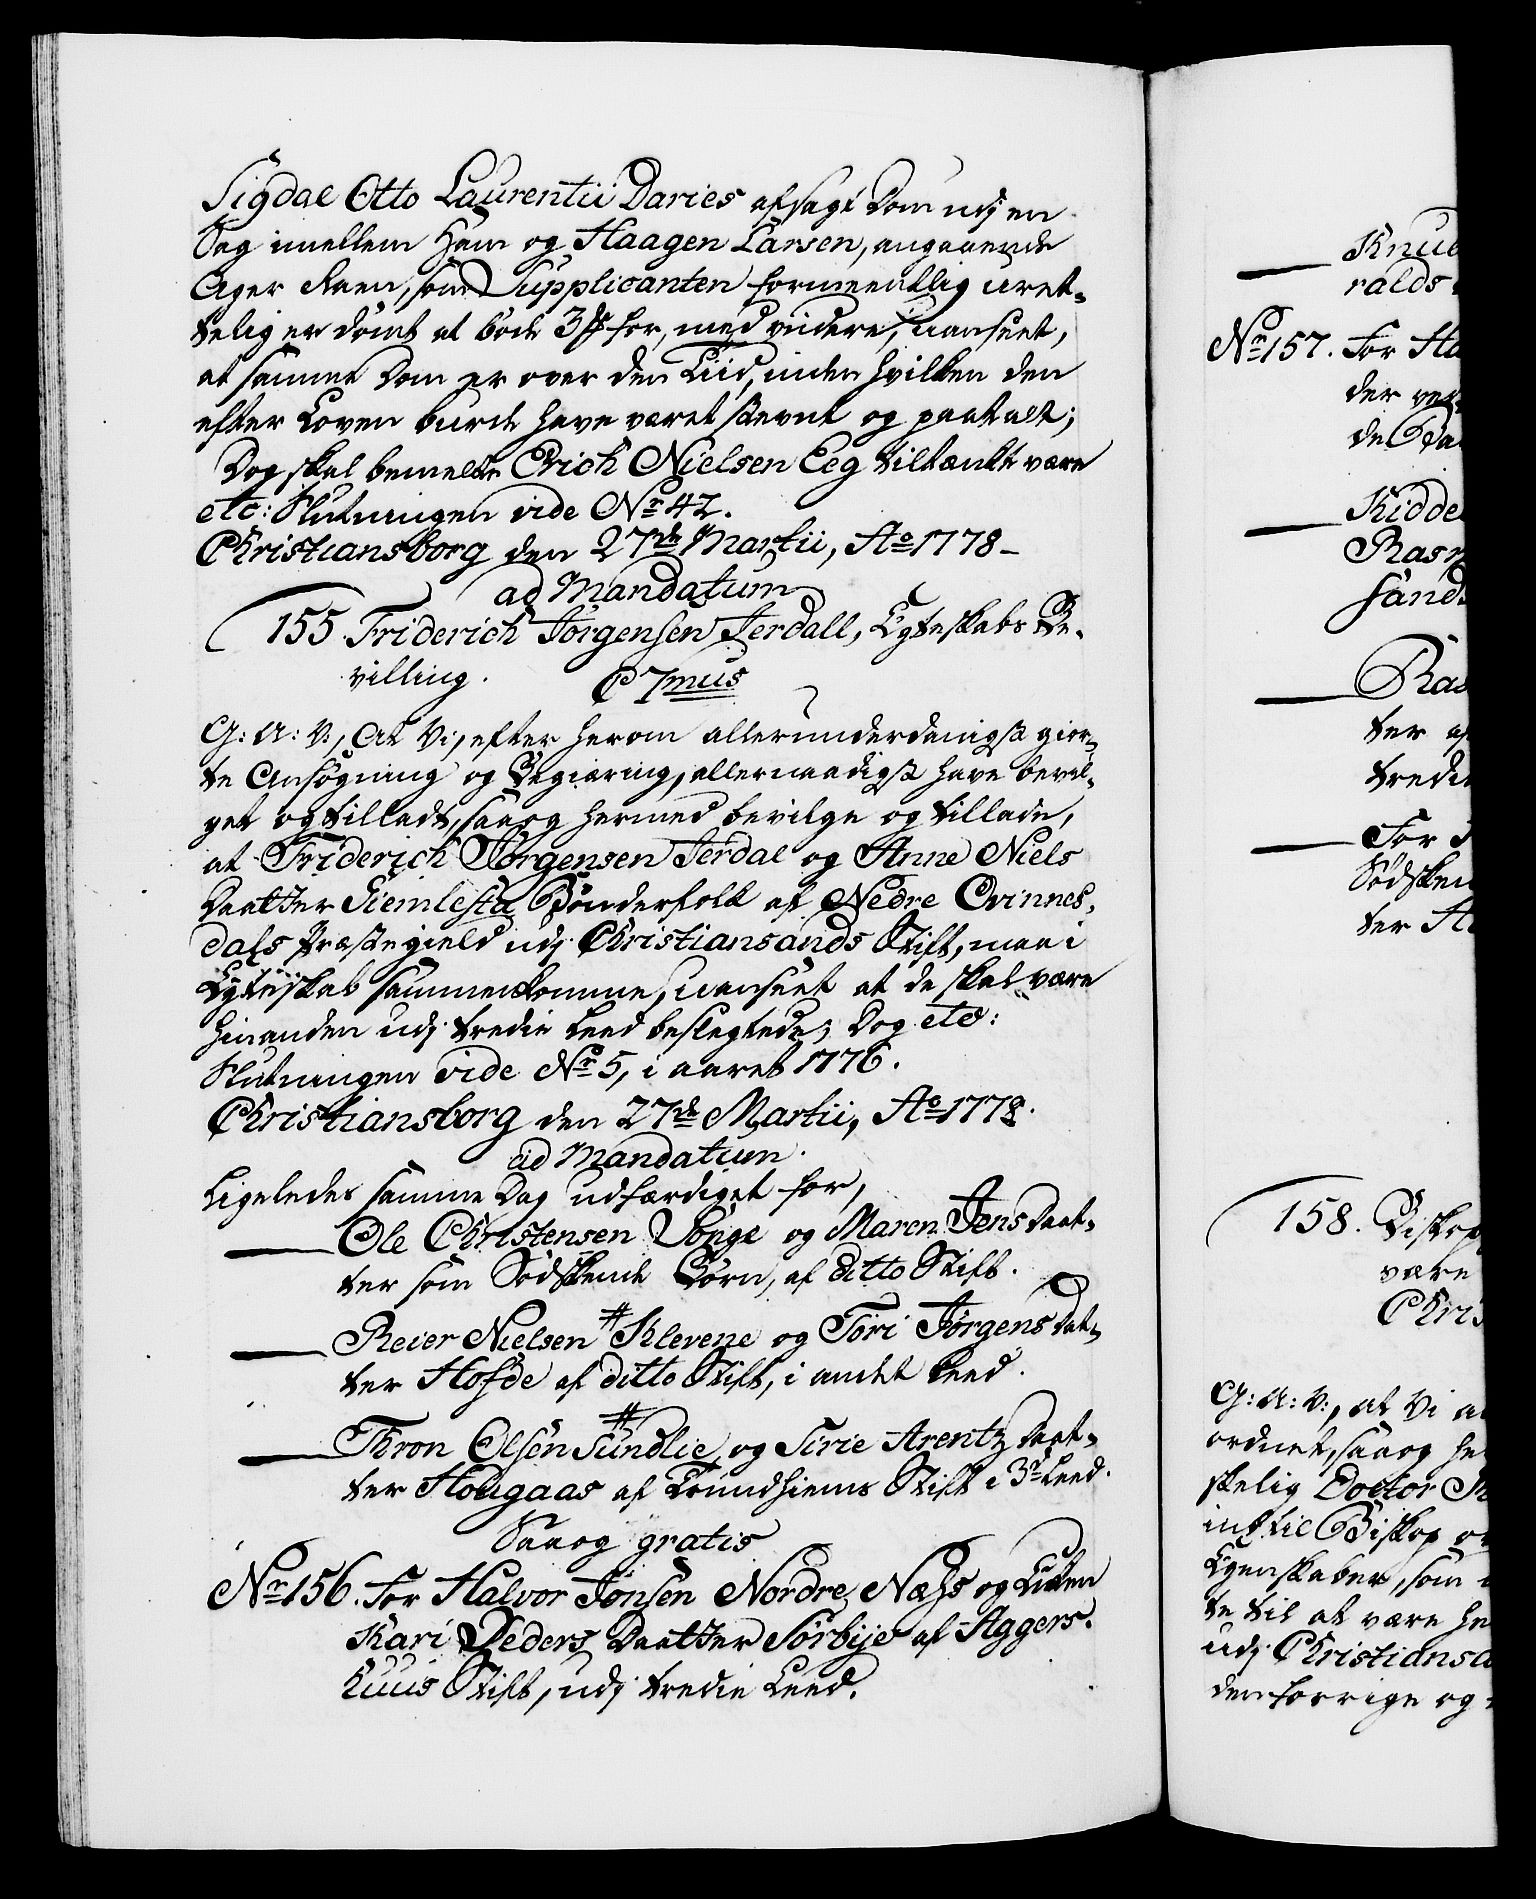 Sigdal Otto Laurentii Daries afsagt Dom udj en
Sag imellem Ham og Haagen Larsen, angaaende
Ager Reen, som Supplicanten formeentlig uret-
telig er dömt at böde 3 for, med videre, uanseet,
at samme Dom er over den Tiid, inden hvilken den
efter Loven burde have været stevnt og paatalt;
Dog skal bemelte Erich Nielsen Eeg tiltænkt være
etc: Slutningen vide No 42.
Christiansborg den 27de Martii, Ao 1778 –
ad Mandatum
155. Friderich Jörgensen Jerdall, Egteskabs Be-
villing. C 7mus
G: A: V:, At Vi, efter herom allerunderdanigst gior-
te Ansögning og Begiæring, allernaadigst have bevil-
get og tilladt, saa og hermed bevilge og tillade,
at Friderich Jörgensen Jerdal og Anne Niels
Daatter Siemlestu Bönderfolk af Nedre Qvinnes-
dals Præstegield udj Christiansands Stift, maa i
Egteskab sammenkomme, uanseet at de skal være
hinanden udj tredie Leed beslegtede; Dog etc:
Slutningen vide No 5, i aaret 1776.
Christiansborg den 27de Martii, Ao 1778.
ad Mandatum.
Ligeledes samme Dag udfærdiget for,
— Ole Christensen Vonge og Maren Jens Daat-
ter som Södskende Börn, af ditto Stift.
— Reier Nielsen # Klevene og Töri Jörgens Dat-
ter Hofde af ditto Stift, i andet Leed.
— Thron Olsen # Sundlie og Sirie Arentz Daat-
ter Hougaas af Trundhiems Stift i 3die Leed.
Saa og gratis
No 156. For Halvor Jonsen Nordre Næhs og
Kari Peders Daatter Sörbye af Aggers-
huus Stift, udj tredie Leed.
Knud
ralds
No 157. For Ha
der
de Da
Kidde
Rasm
sands
Ras
ter af
tredie
For
Södsken
ter
158. Biskop
være
Chris
G: A: V:, at Vi al
ordnet, saa og he
skelig Doctor
ind til Biskop
Egenskaber, som
te til at være he
udj Christiansa
den forrige og